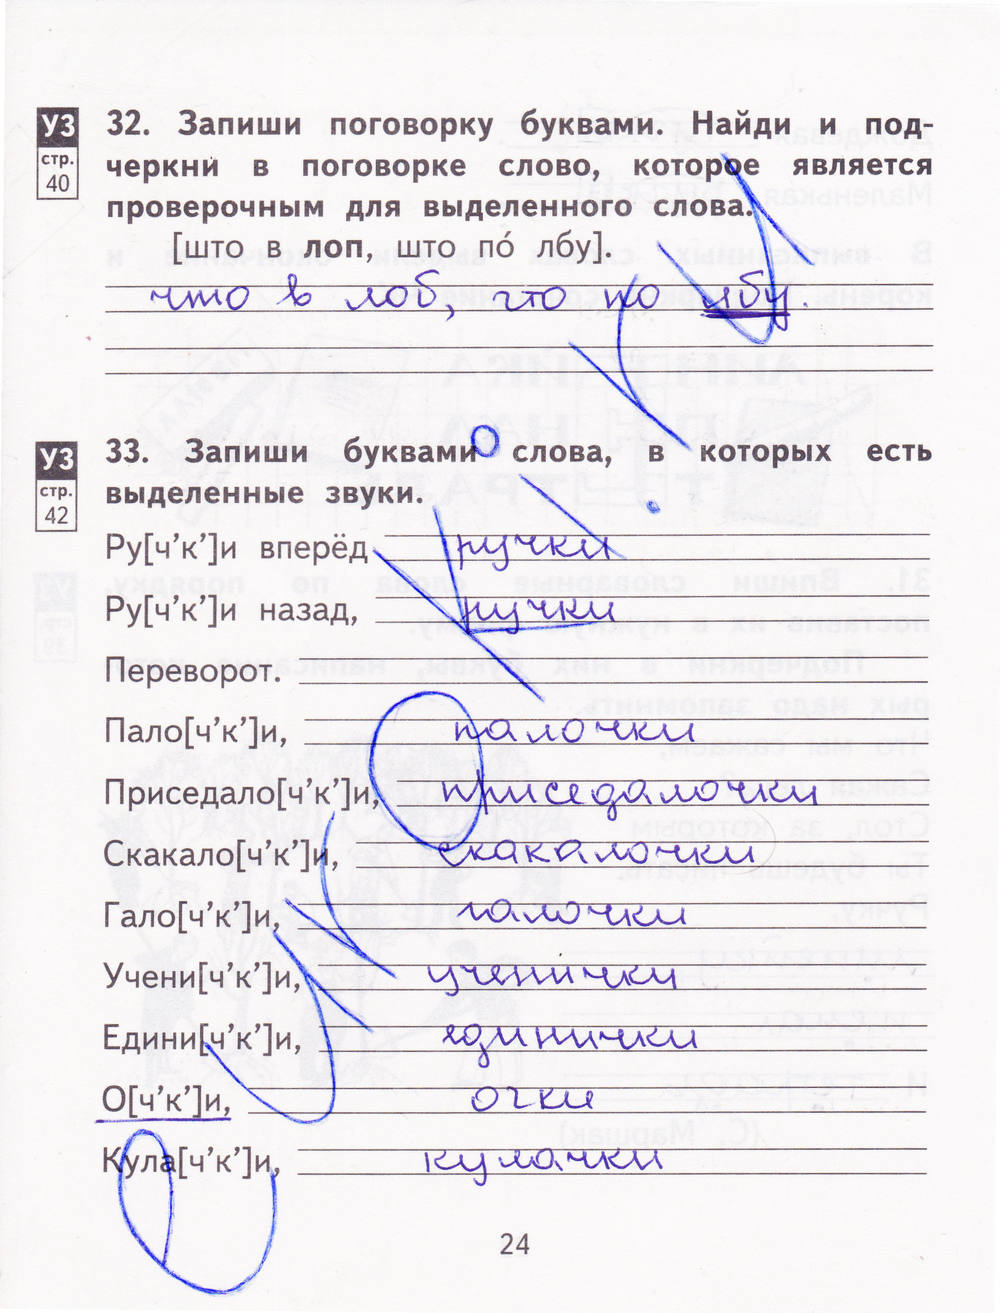 УЗ
стр.
40
32. Запиши поговорку буквами. Найди и под-
черкни в поговорке слово, которое является
проверочным для выделенного слова.
[што в лоп, што по́ лбу].
что в лоб, что по лбу.
УЗ
стр.
42
33. Запиши буквами слова, в которых есть
выделенные звуки.
Ру[ч’к’]и вперёд ручки
Ру[ч’к’]и назад, ручки
Переворот.
Пало[ч’к’]и, палочки
Приседало[ч’к’]и, приседалочки
Скакало[ч’к’]и, скакалочки
Гало[ч’к’]и, галочки
Учени[ч’к’]и, ученички
Едини[ч’к’]и, единички
О[ч’к’]и, очки
Кула[ч’к’]и, кулачки
24